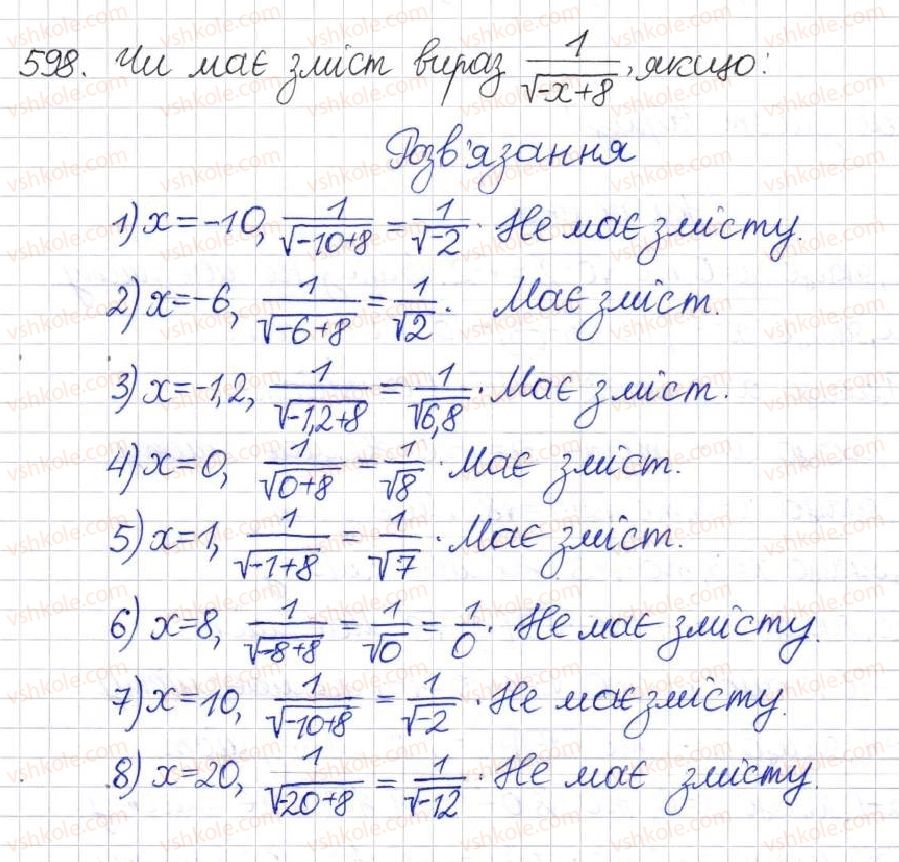 598. Чи має зміст вираз 1/√(-x+8), якщо:
Розв'язання
1) x=-10, 1/√(-10+8) = 1/√(-2). Не має змісту.
2) x=-6, 1/√(-6+8) = 1/√2. Має зміст.
3) x=-1,2, 1/√(-1,2+8) = 1/√6,8. Має зміст.
4) x=0, 1/√(0+8) = 1/√8. Має зміст.
5) x=1, 1/√(-1+8) = 1/√7. Має зміст.
6) x=8, 1/√(-8+8) = 1/√0 = 1/0. Не має змісту.
7) x=10, 1/√(-10+8) = 1/√(-2). Не має змісту.
8) x=20, 1/√(-20+8) = 1/√(-12). Не має змісту.